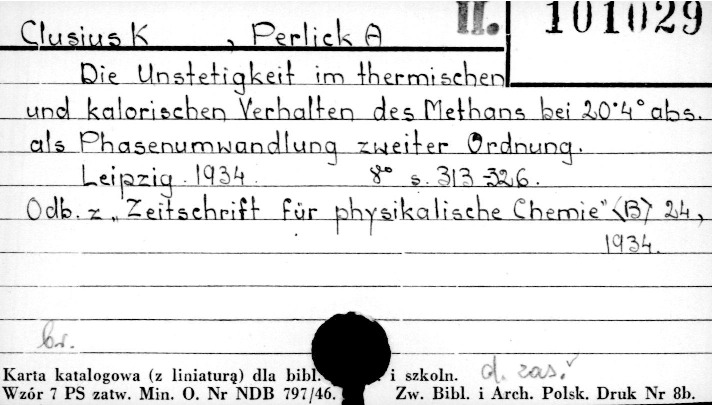 Clusius K , Perlick A II. 101029
Die Unstetigkeit im thermischen
und kalorischen Verhalten des Methans bei 20·4° abs.
als Phasenumwandlung zweiter Ordnung.
Leipzig. 1934. 8° s. 313-326.
Odb. z „Zeitschrift für physikalische Chemie" <B> 24,
1934.
br.
d. zas.
Karta katalogowa (z liniaturą) dla bibl. i szkoln.
Wzór 7 PS zatw. Min. O. Nr NDB 797/46. Zw. Bibl. i Arch. Polsk. Druk Nr 8b.